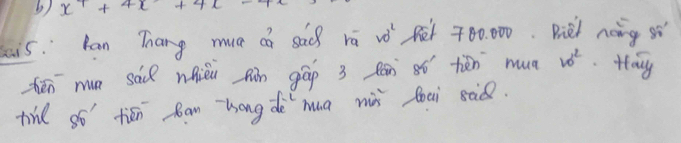 b) x⁴ + 4x + 4x - 3
Bài 5: Bạn Trang mua cả sách và vở hết 700.000. Biết rằng số
tiền mua sách nhiều hơn gấp 3 lần số tiền mua vở. Hãy
tính số tiền bạn Trang để mua mỗi loại sách.